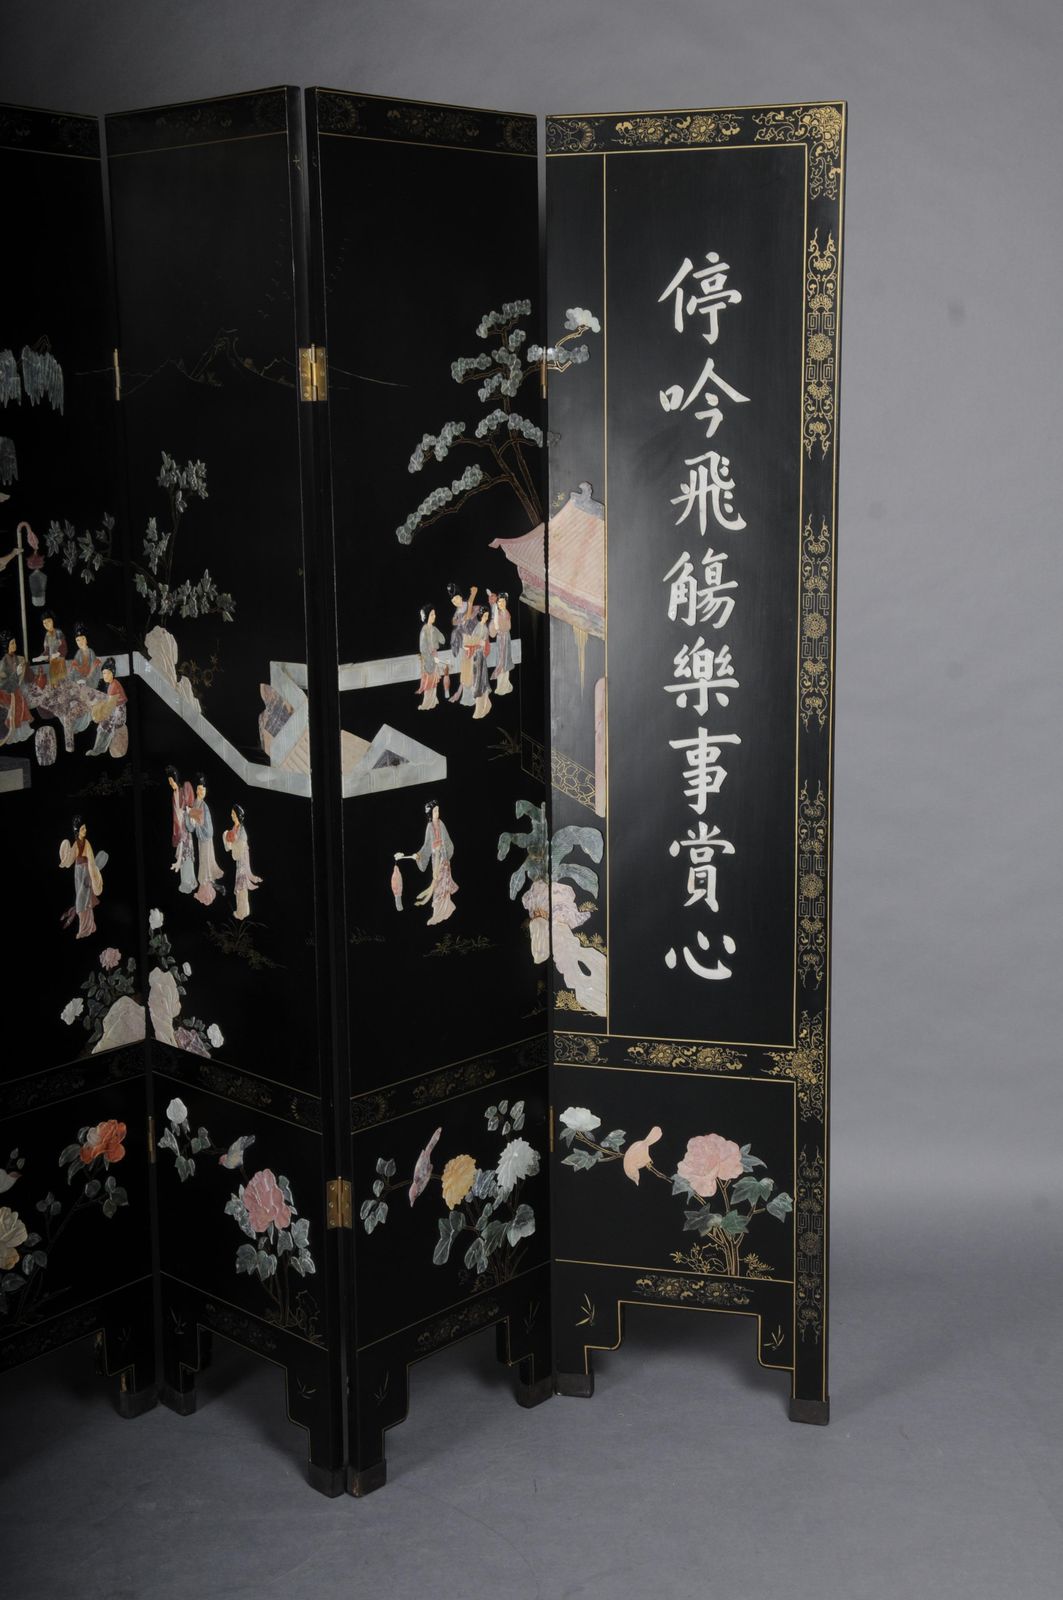 停吟飛觴樂事賞心